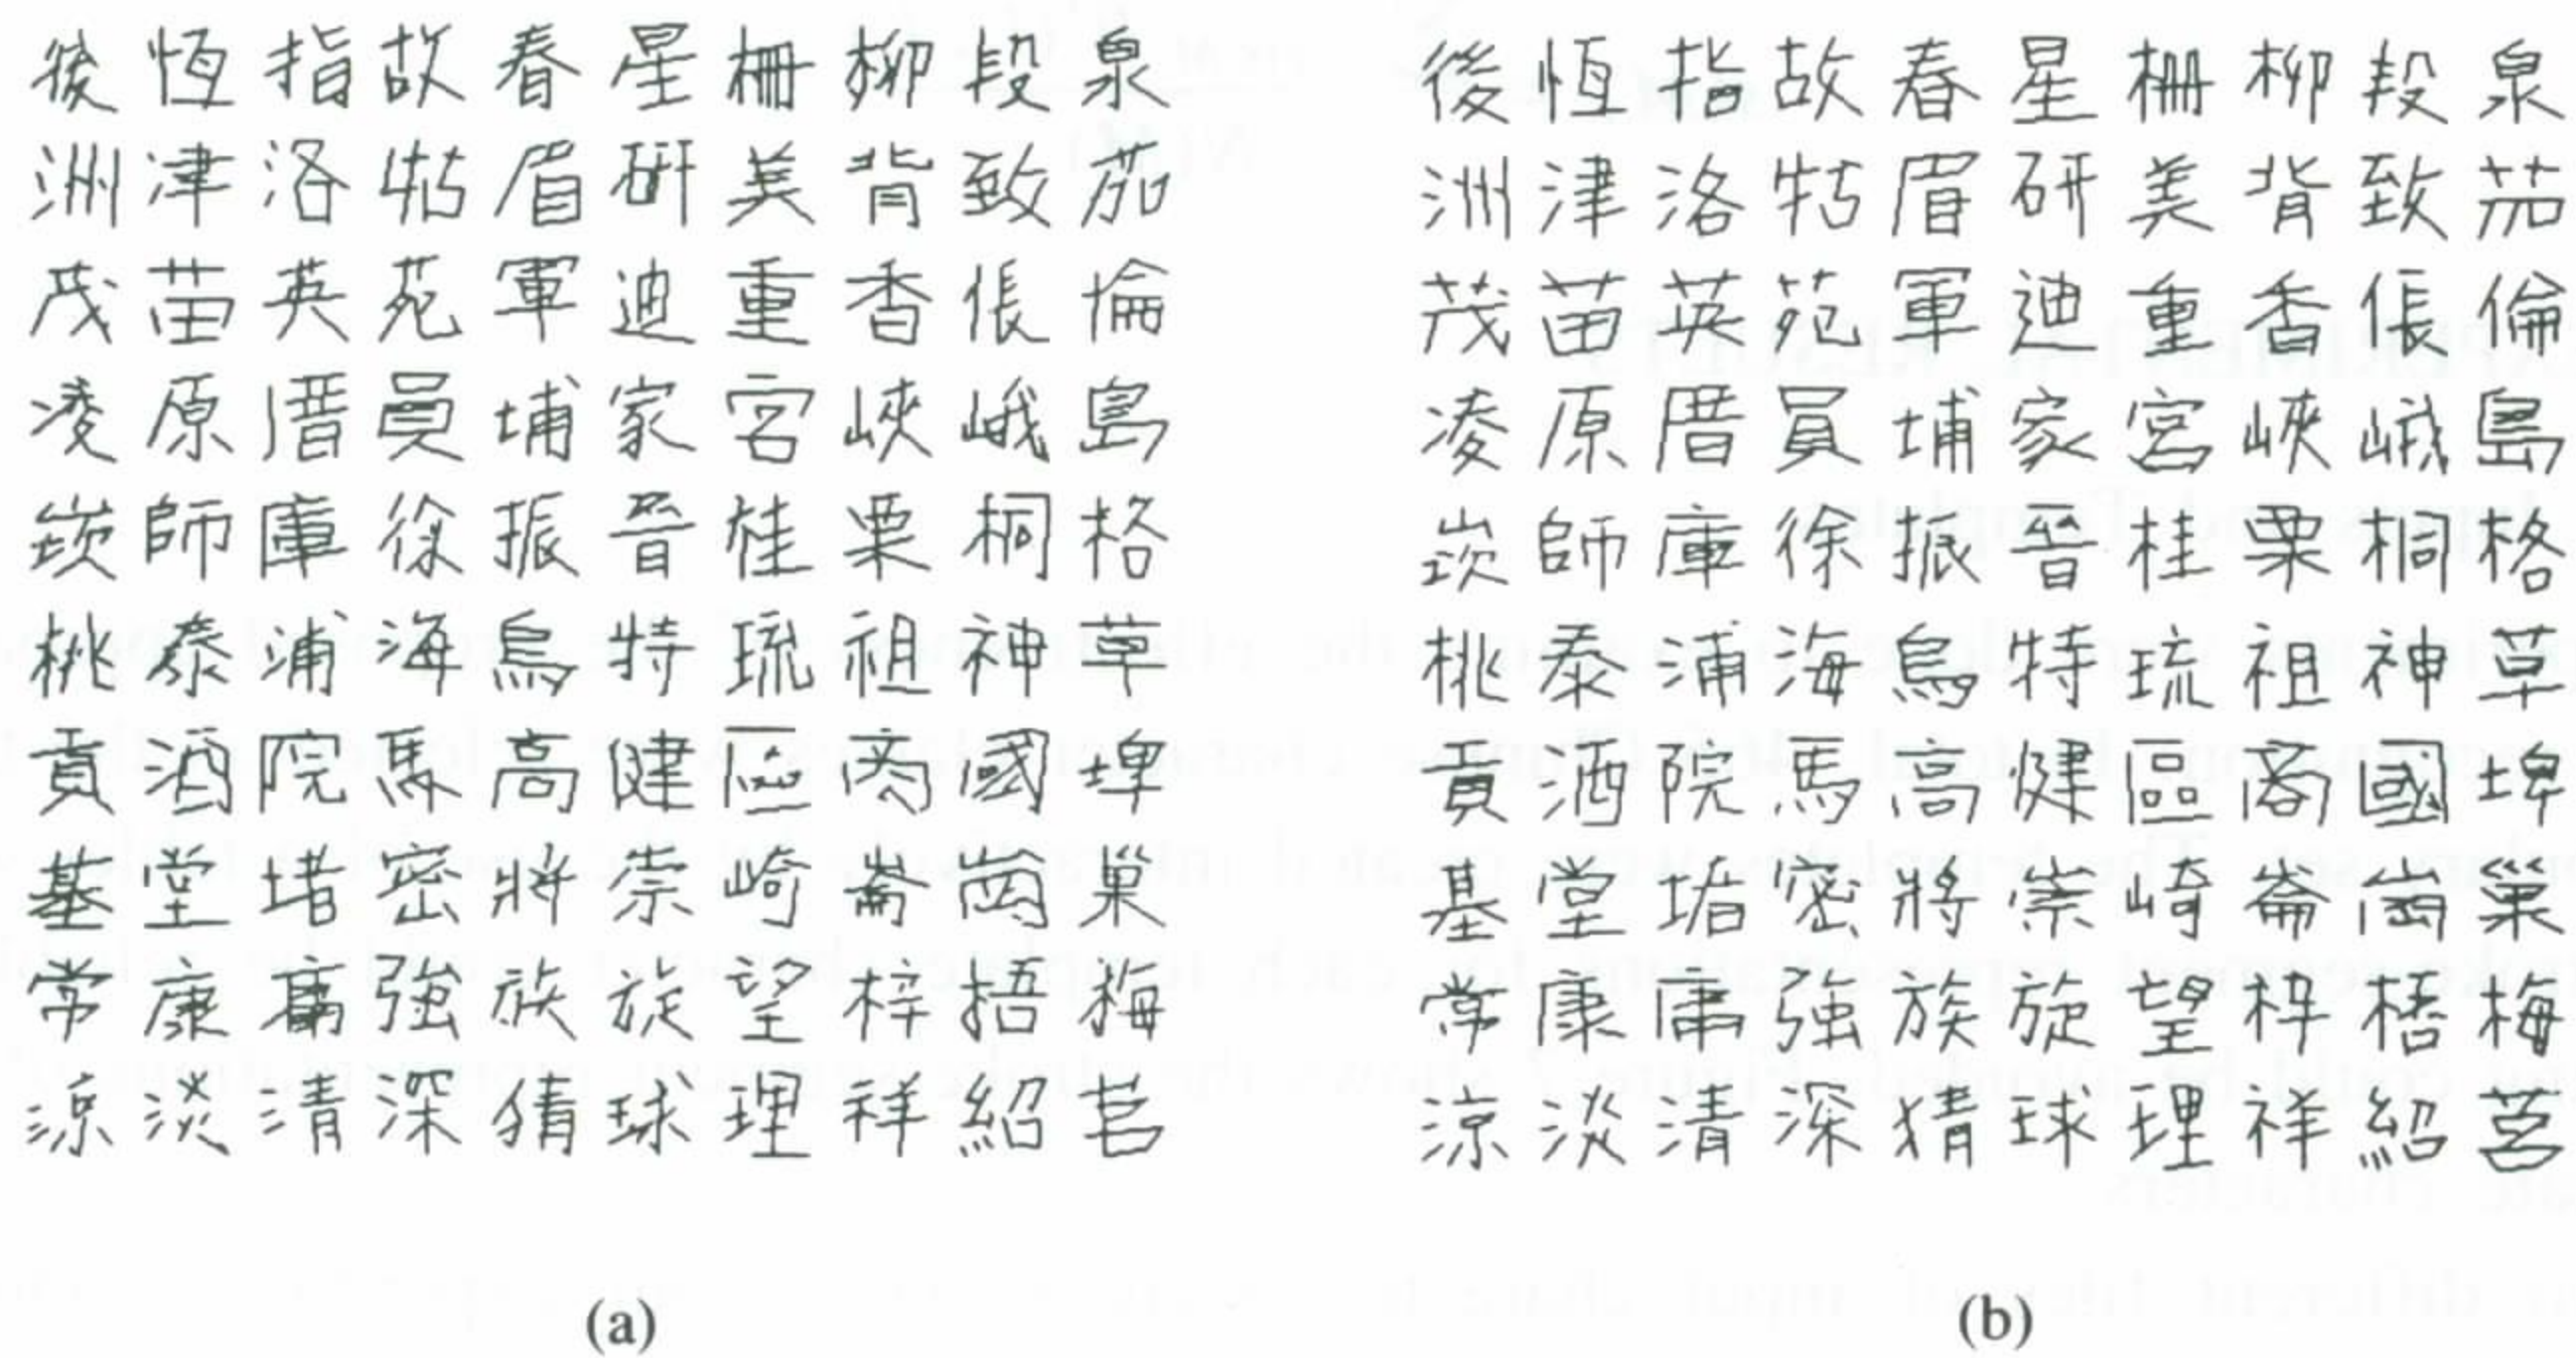 後恆指故春星柵柳段泉
洲津洛牯眉研美背致茄
茂苗英苑軍迪重香倀倫
凌原厝員埔家宮峽峨島
崁師庫徐振晉桂栗桐格
桃泰浦海烏特琉祖神草
貢酒院馬高健區商國埤
基堂堵密將崇崎崙崗巢
常康強族旋望梓梧梅
涼淡清深猜球理祥紹莒
(a)
後恆指故春星柵柳段泉
洲津洛牯眉研美背致茄
茂苗英苑軍迪重香倀倫
凌原厝員埔家宮峽峨島
崁師庫徐振晉桂栗桐格
桃泰浦海烏特琉祖神草
貢酒院馬高健區商國埤
基堂堵密將崇崎崙崗巢
常康庸強族旋望梓梧梅
涼淡清深猜球理祥紹莒
(b)